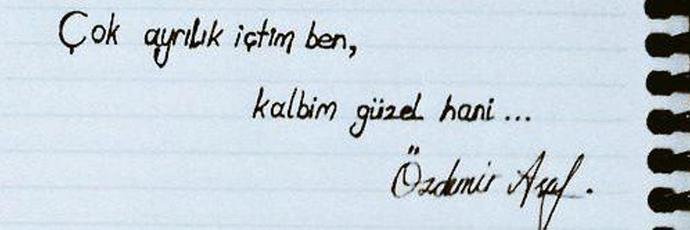 Çok ayrılık içtim ben,
kalbim güzel hani...
Özdemir Asaf.